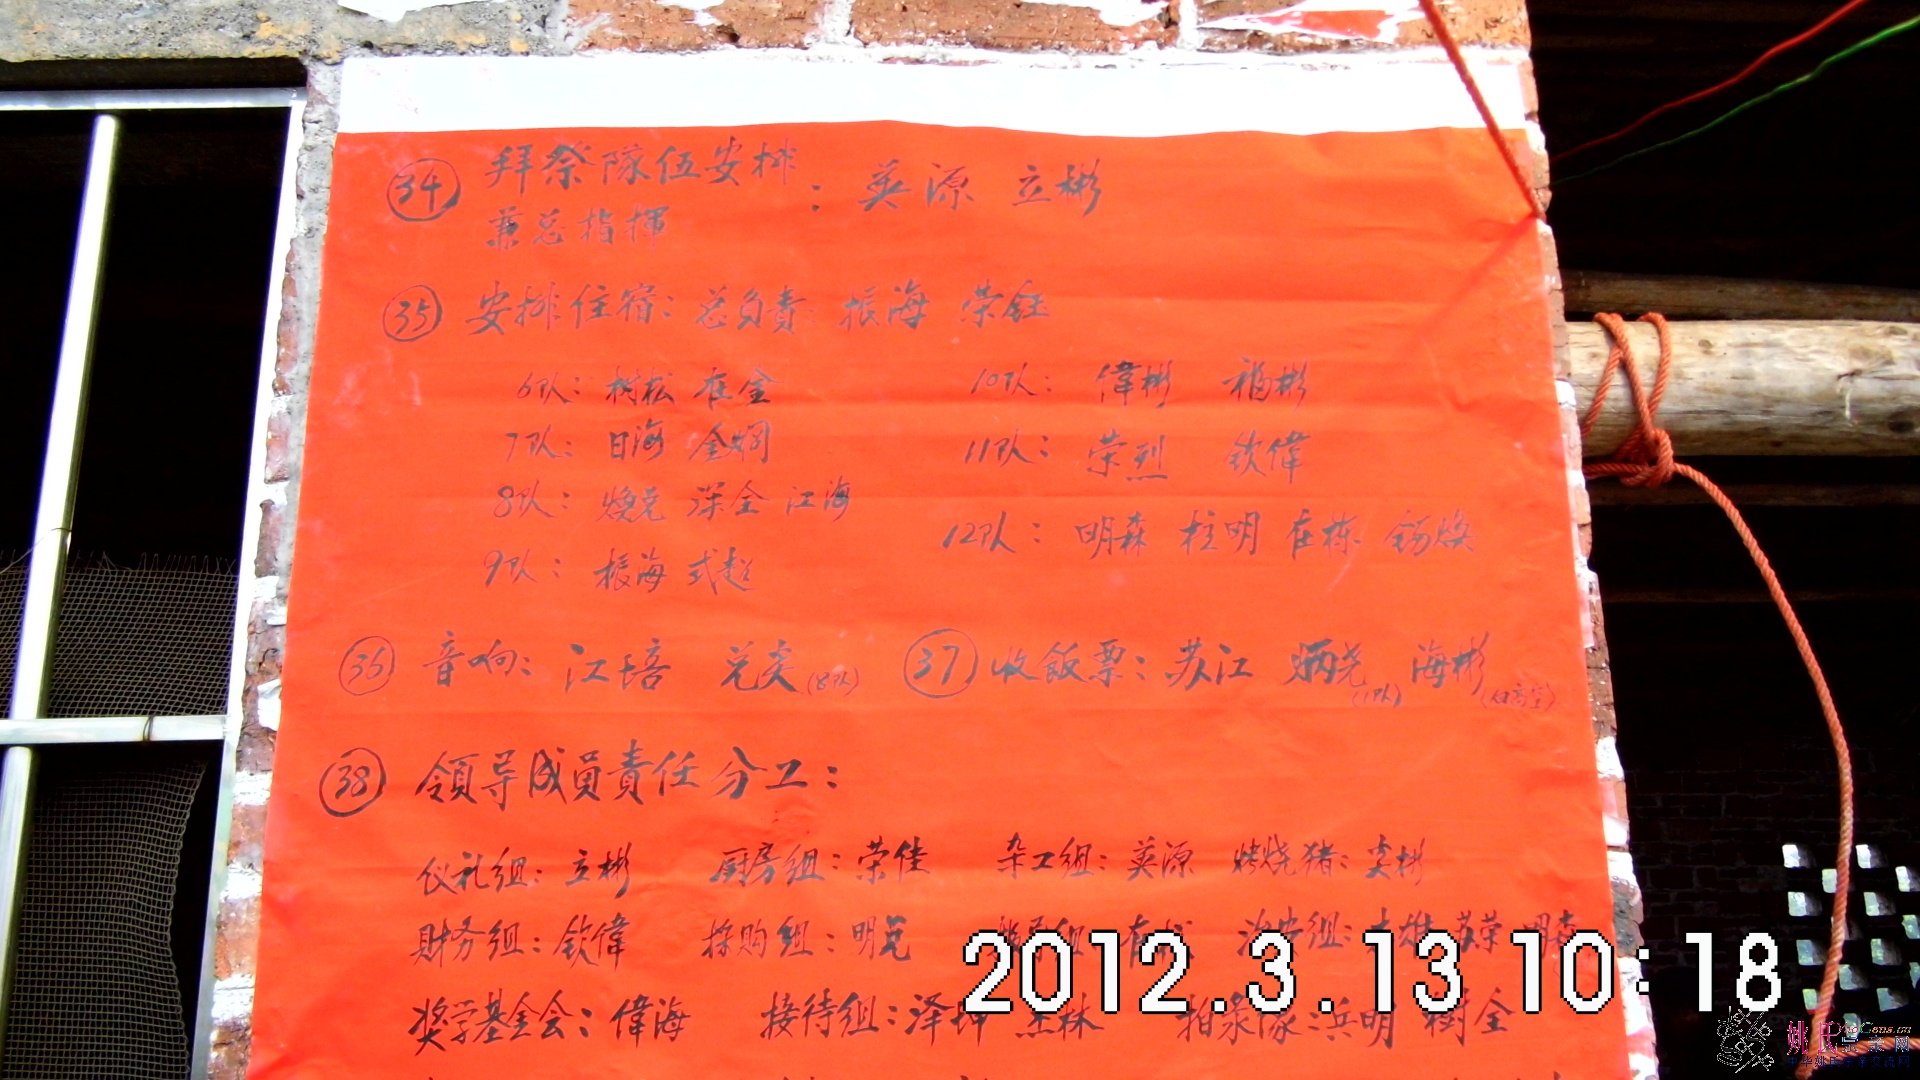 34 拜祭隊伍安排 : 英源 立彬
兼总指揮
35 安排住宿: 总负責: 振海 荣钰
6队: 树松 在金 10队: 偉彬 福彬
7队: 日海 金炯 11队: 荣烈 钦偉
8队: 焕尧 深全 江海 12队: 明森 柱明 在栋 錫焕
9队: 振海 式超
36 音响: 江培 (8队) 37 收飯票: 苏江 炳尧(11队) 海彬
38 領导成員責任分工:
仪礼组: 立彬 厨房组: 荣佳 杂工组: 英源 烤烧猪: 奕彬
財务组: 钦偉 採购组: 明 治安组: 苏荣 明森
奖学基金会: 偉海 接待组: 泽坤 杰林 拍录像: 兵明 樹全
2012.3.13 10:18